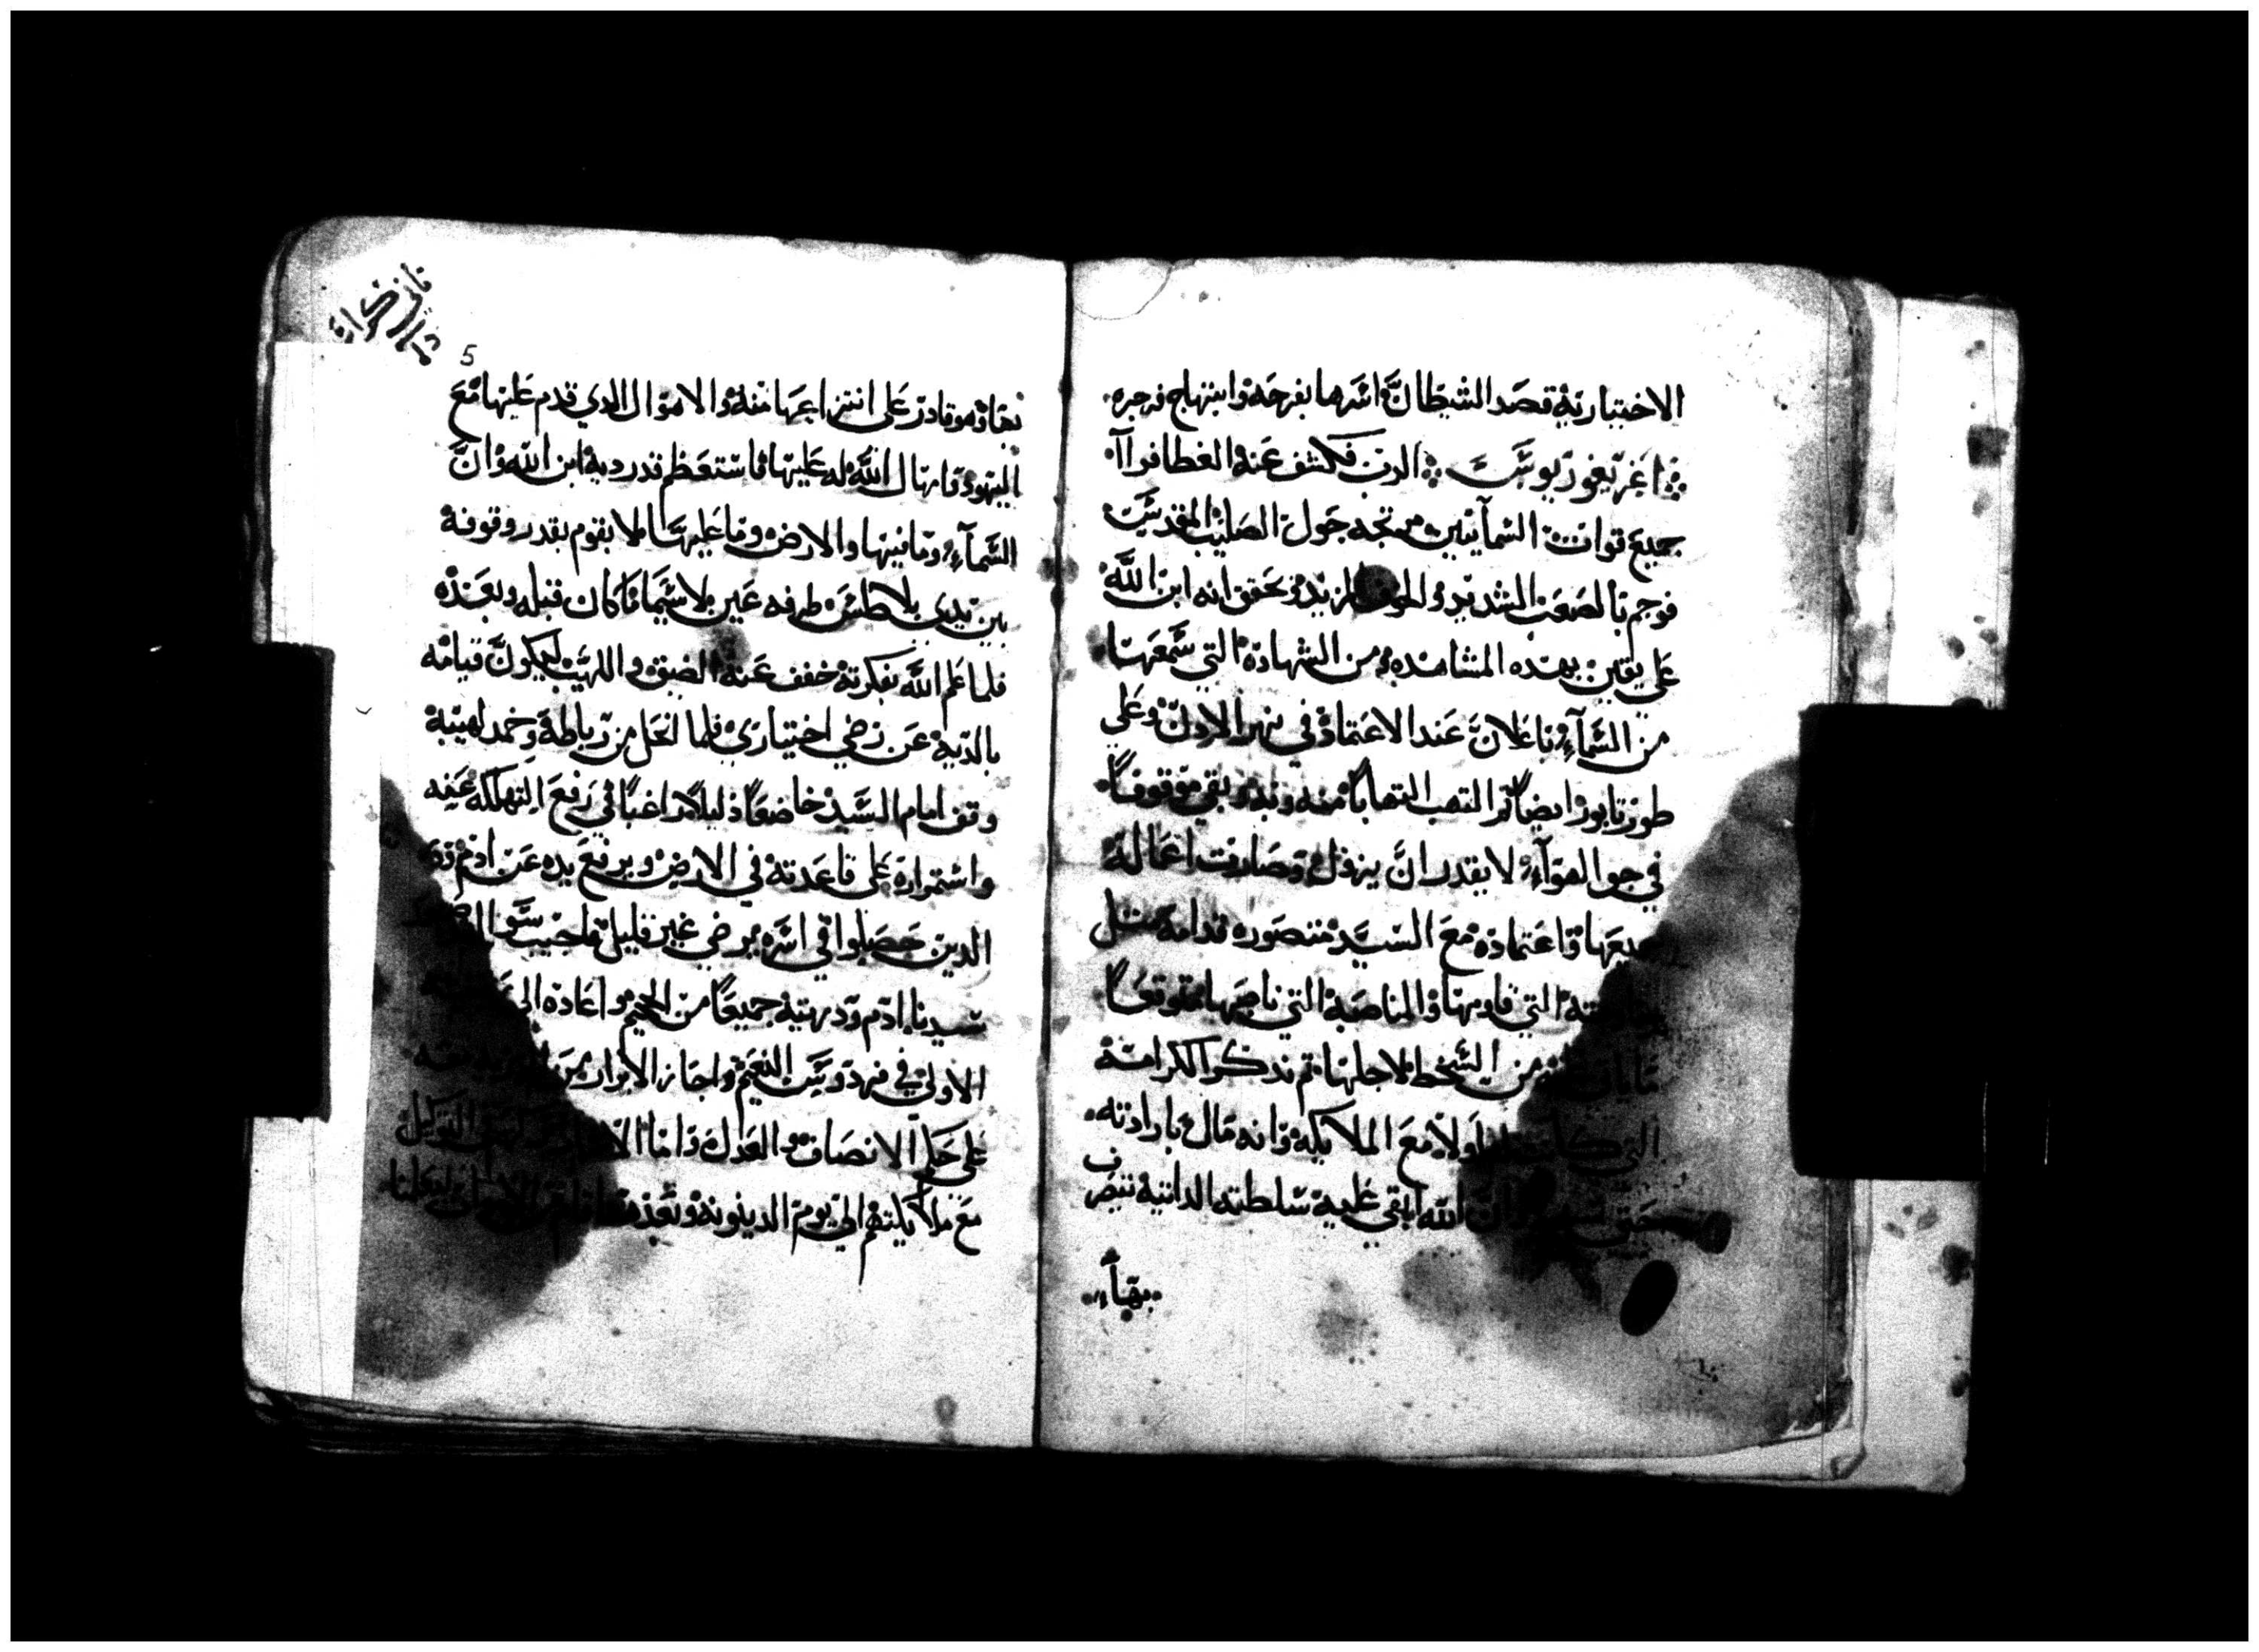 الاختيارية قصد الشيطان اسرها بفرحة وابتهاج فزجره
اغريغوريوس الرب فكشف عنه الغطا فراا
جميع قوات السمآيين متجه حول الصليب المقدس
فوجم بالصعب الشديد والخوف المزيد وتحقق انه ابن الله
على يقين بهده المشاهده ومن الشهادة التي سمعها
من السمآء باعلان عند الاعتماد في نهر الاردن وعلى
طور تابور ايضاً ثم التهب التهاباً منه وبه وبقي موقوفاً
في جو الهوآء لا يقدر ان ينزل وصارت اعماله
جميعها واعتماده مع السيد متصوره قدامه مثل
التي قاومها والمناصبة التي ناصبها متوقعاً
من السخط لاجلها ثم تذكر الكرامة
التي اولا مع الملايكة وانه مال بارادته
حتى الله ابقى عليه سلطته الداتية تتصرف
بهاء
5
بها وهو قادر على انتزاعها منه والاهوال الدي قدم عليها مع
اليهود وامهال الله له عليها فاستعظم قدر دية ابن الله وان
السمآء وما فيها والارض وما عليها لا يقوم بقدر وقوفه
بين يدي بلاطس طرفه عين لا سيما ما كان قبله وبعده
فلما علم الله بفكرته خفف عنه الضيق واللهيب ليكون قيامه
بالدية عن رضي اختياري فلما انحل من رباطه وخمد لهيبه
وقف امام السيد خاضعاً ذليلاً راغباً في رفع التهلكه عنه
واستمراره على قاعدته في الارض ويرفع يده عن ادم
الدين حصلوا في اسره برضي غير قليل فاجيب سوال
سيدنا ادم ودريته جميعاً من الجحيم واعاده الى
الاولى في فردوس النعيم واجاز الابرار
على حكم الانصاف والعدل واما
مع ملايكتهم الى يوم الدينونة وبعد